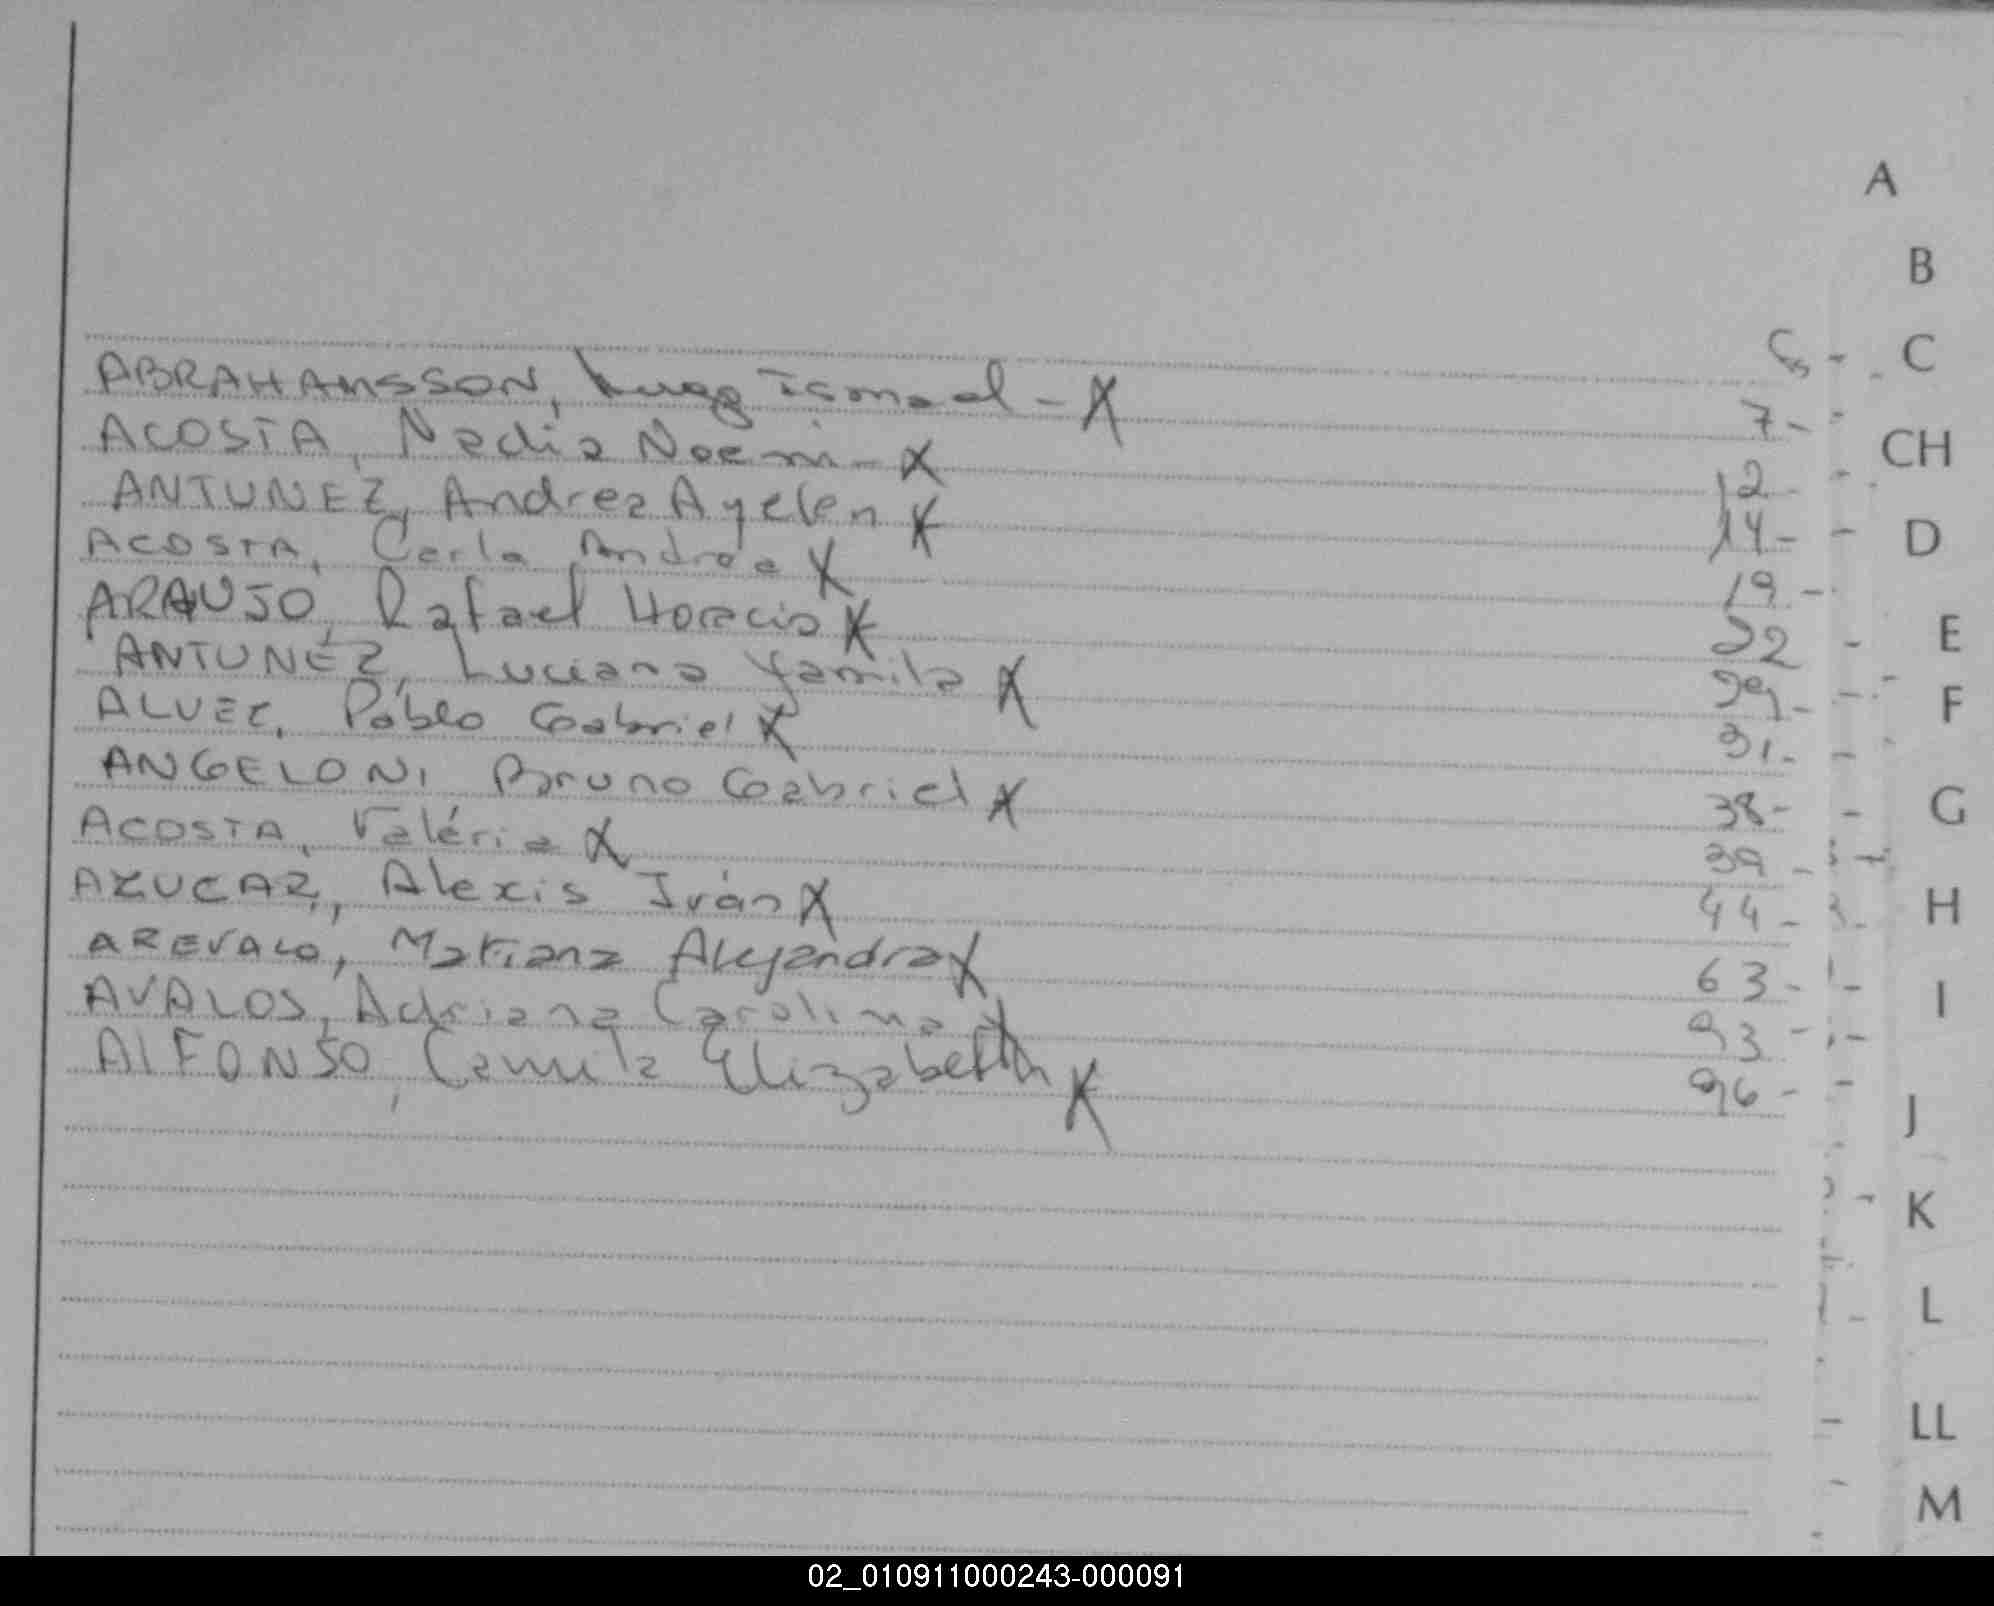 A
B
C
CH
D
E
F
G
H
I
J
K
L
LL
M
ABRAHAMSSON, Ismael - X 5 -
ACOSTA, Nadia Noemi - X 7 -
ANTUNEZ, Andrea Ayelen X 12 -
ACOSTA, Carla Andrea X 14 -
ARAUJO, Rafael Horacio X 19 -
ANTUNEZ, Luciana Yamila X 22
ALVEZ, Pablo Gabriel X 29 -
ANGELONI Bruno Gabriel X 31 -
ACOSTA, Valéria X 38 -
AZUCAR, Alexis Iván X 39 -
AREVALO, Mariana Alejandra X 44 -
AVALOS, Adriana Carolina X 63 -
ALFONSO, Camila Elizabeth X 93 -
96 -
02_010911000243-000091